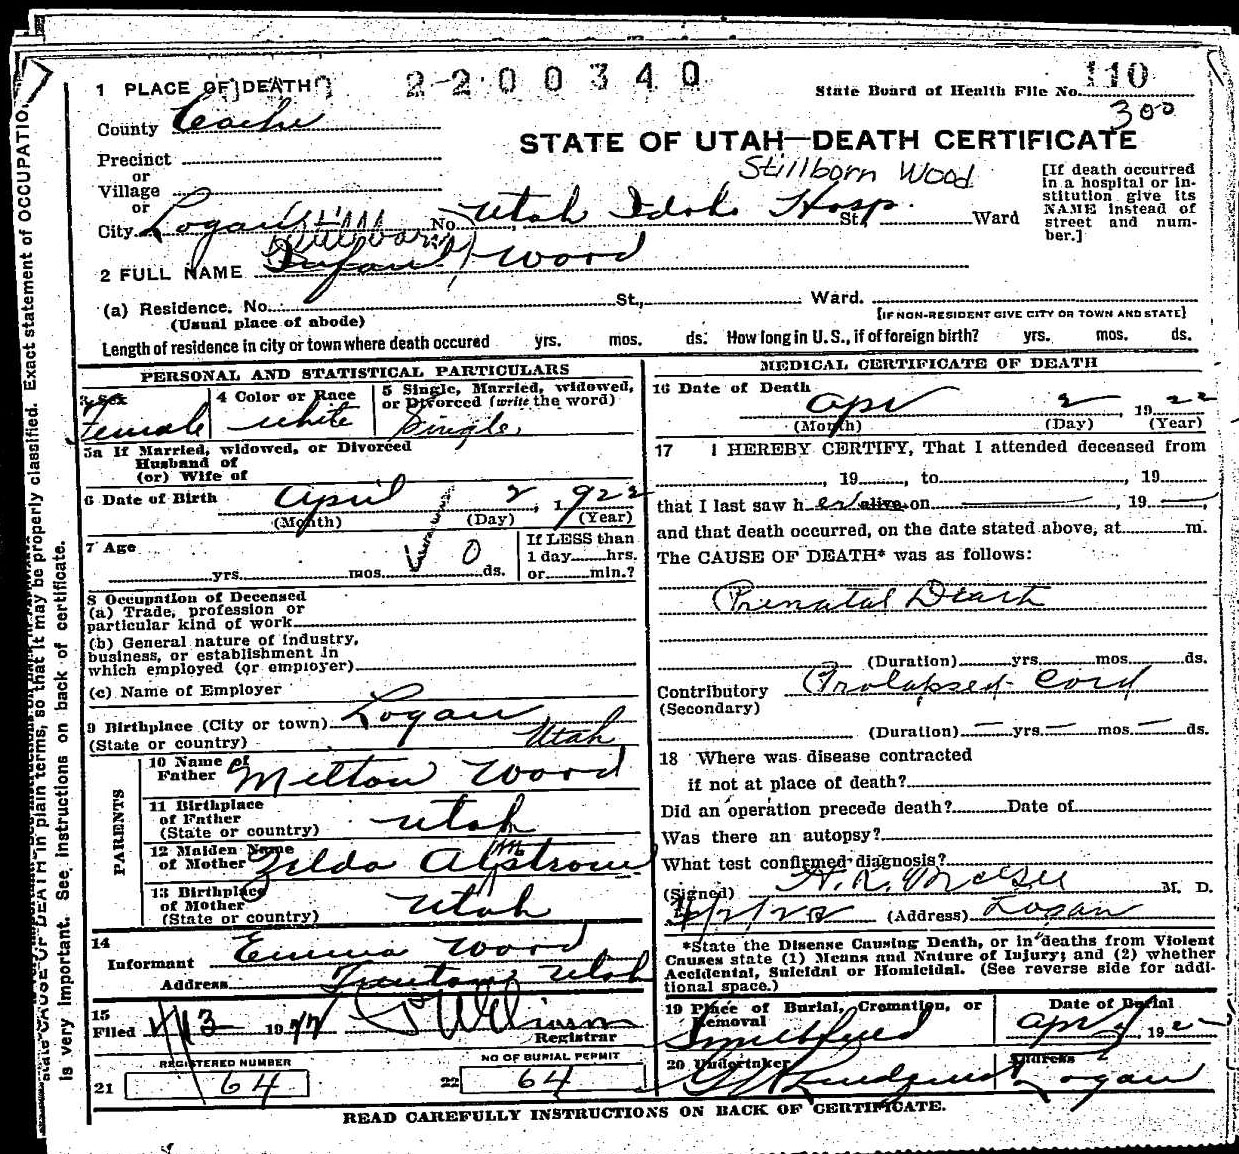 1 PLACE OF DEATH
2200340
110
State Board of Health File No.
300
County Cache
STATE OF UTAH—DEATH CERTIFICATE
Precinct
or
Village
or
Stillborn Wood
[If death occurred
in a hospital or in-
stitution give its
NAME instead of
street and num-
ber.]
City Logan No. Utah Idaho Hosp. St., Ward
Stillborn
2 FULL NAME Infant Wood
(a) Residence. No. St., Ward.
(Usual place of abode)
[IF NON-RESIDENT GIVE CITY OR TOWN AND STATE]
Length of residence in city or town where death occured yrs. mos. ds. How long in U.S., if of foreign birth? yrs. mos. ds.
PERSONAL AND STATISTICAL PARTICULARS
3 Sex
Female
4 Color or Race
white
5 Single, Married, widowed,
or Divorced (write the word)
Single
5a If Married, widowed, or Divorced
Husband of
(or) Wife of
6 Date of Birth April 2, 1922
(Month) (Day) (Year)
7 Age
yrs. mos. 0 ds.
If LESS than
1 day hrs.
or min.?
8 Occupation of Deceased
(a) Trade, profession or
particular kind of work
(b) General nature of industry,
business, or establishment in
which employed (or employer)
(c) Name of Employer
9 Birthplace (City or town) Logan
(State or country) Utah
PARENTS
10 Name of
Father Melton Wood
11 Birthplace
of Father
(State or country) Utah
12 Maiden Name
of Mother Zelda
13 Birthplace
of Mother
(State or country) Utah
14
Informant Emma Wood
Address Trenton Utah
15
Filed 19
Registrar
REGISTERED NUMBER
21 64
NO OF BURIAL PERMIT
22 64
MEDICAL CERTIFICATE OF DEATH
16 Date of Death
Apr 2, 1922
(Month) (Day) (Year)
17 I HEREBY CERTIFY, That I attended deceased from
, 19 , to , 19
that I last saw her alive on , 19
and that death occurred, on the date stated above, at m.
The CAUSE OF DEATH* was as follows:
Prenatal Death
(Duration) yrs. mos. ds.
Contributory Prolapsed Cord
(Secondary)
(Duration) — yrs. — mos. — ds.
18 Where was disease contracted
if not at place of death?
Did an operation precede death? Date of
Was there an autopsy?
What test confirmed diagnosis?
(Signed) M. D.
4/2/22 (Address) Logan
*State the Disease Causing Death, or in deaths from Violent
Causes state (1) Means and Nature of Injury; and (2) whether
Accidental, Suicidal or Homicidal. (See reverse side for addi-
tional space.)
19 Place of Burial, Cremation, or
Removal
Smithfield
Date of Burial
Apr 192
20 Undertaker
Lundquist
Address
Logan
READ CAREFULLY INSTRUCTIONS ON BACK OF CERTIFICATE.
CAUSE OF DEATH in plain terms, so that it may be properly classified. Exact statement of OCCUPATION
is very important. See instructions on back of certificate.